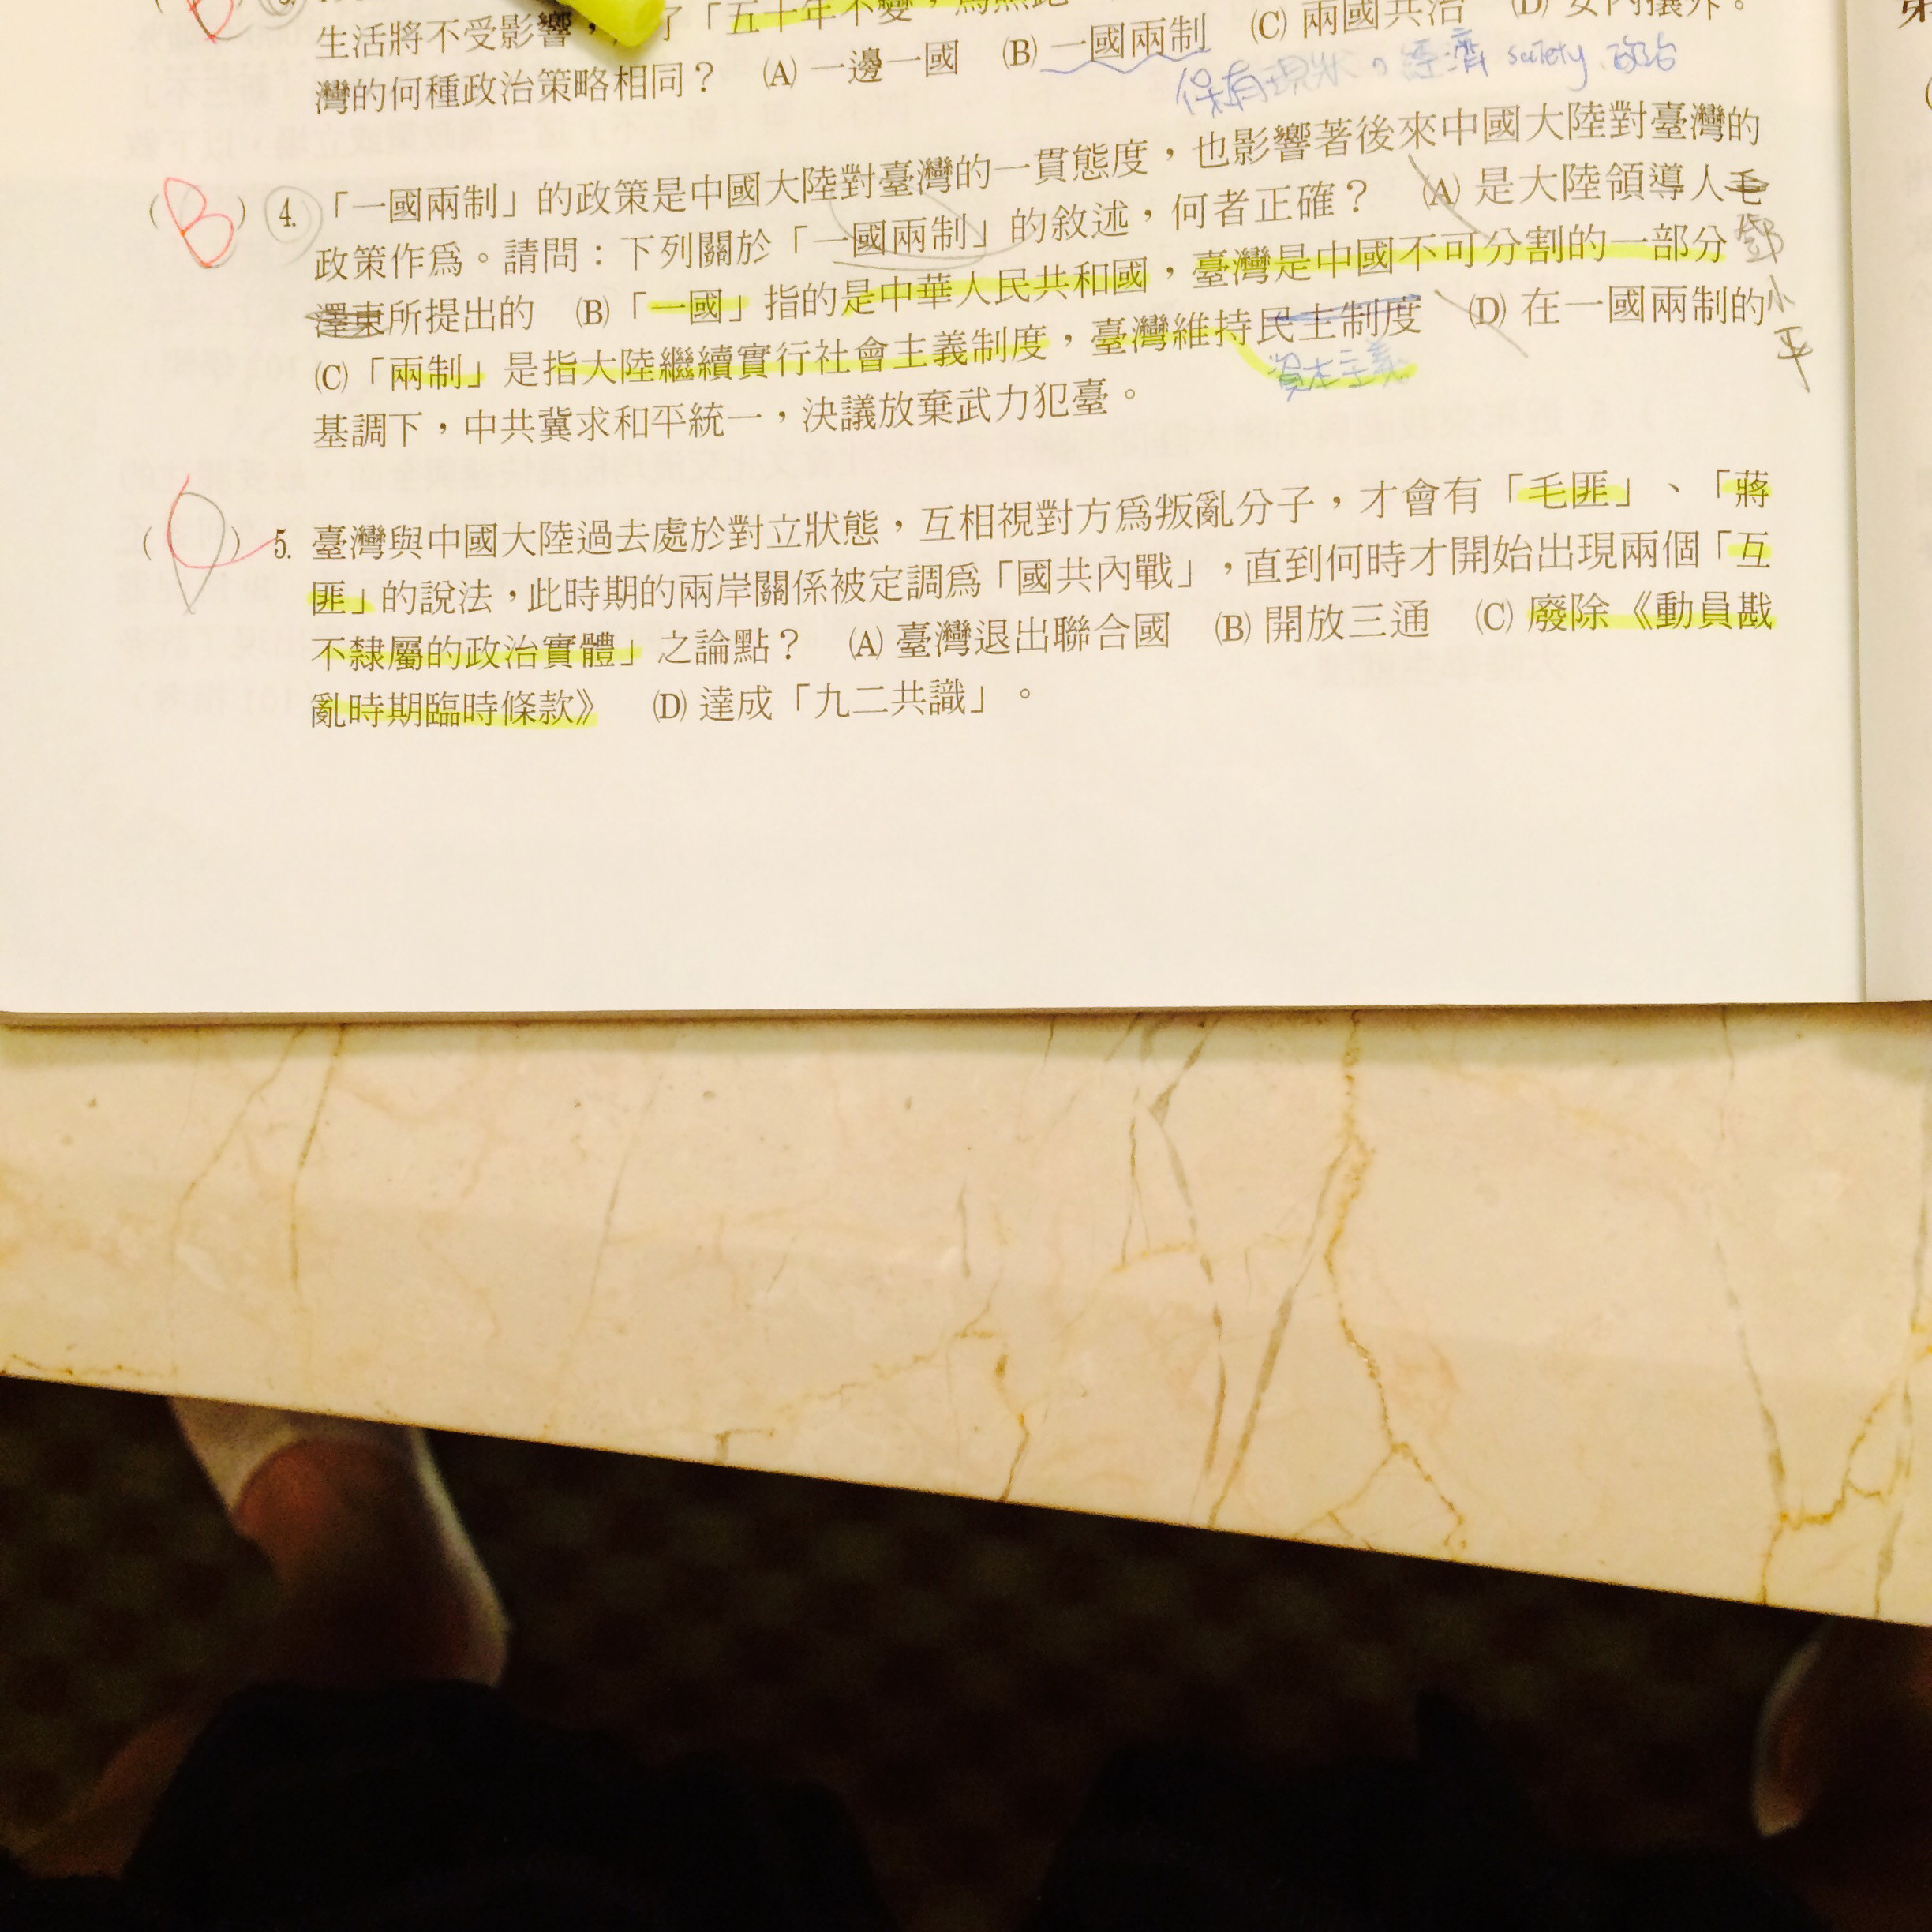 生活將不受影響,了「五十年不變,馬照跑
灣的何種政治策略相同? (A) 一邊一國 (B) 一國兩制 (C) 兩國共治 (D) 安內攘外。
保有現狀。經濟 society 政治
(B) 4. 「一國兩制」的政策是中國大陸對臺灣的一貫態度,也影響著後來中國大陸對臺灣的
政策作為。請問:下列關於「一國兩制」的敘述,何者正確? (A) 是大陸領導人毛
鄧小平
澤東所提出的 (B)「一國」指的是中華人民共和國,臺灣是中國不可分割的一部分
(C)「兩制」是指大陸繼續實行社會主義制度,臺灣維持民主制度 (D) 在一國兩制的
資本主義
基調下,中共冀求和平統一,決議放棄武力犯臺。
5. 臺灣與中國大陸過去處於對立狀態,互相視對方為叛亂分子,才會有「毛匪」、「蔣
匪」的說法,此時期的兩岸關係被定調為「國共內戰」,直到何時才開始出現兩個「互
不隸屬的政治實體」之論點? (A) 臺灣退出聯合國 (B) 開放三通 (C) 廢除《動員戡
亂時期臨時條款》 (D) 達成「九二共識」。